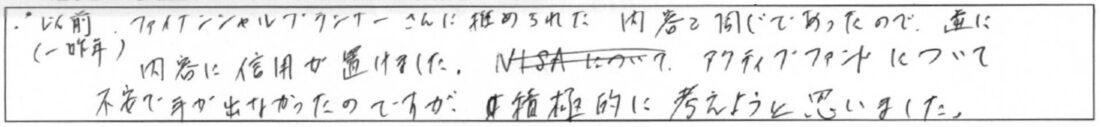 ・以前、ファイナンシャルプランナーさんに推められた 内容と同じであったので、逆に
(一昨年)
内容に信用が置けました。NISAについて、アクティブファンドについて
不安で手が出なかったのですが、積極的に考えようと思いました。